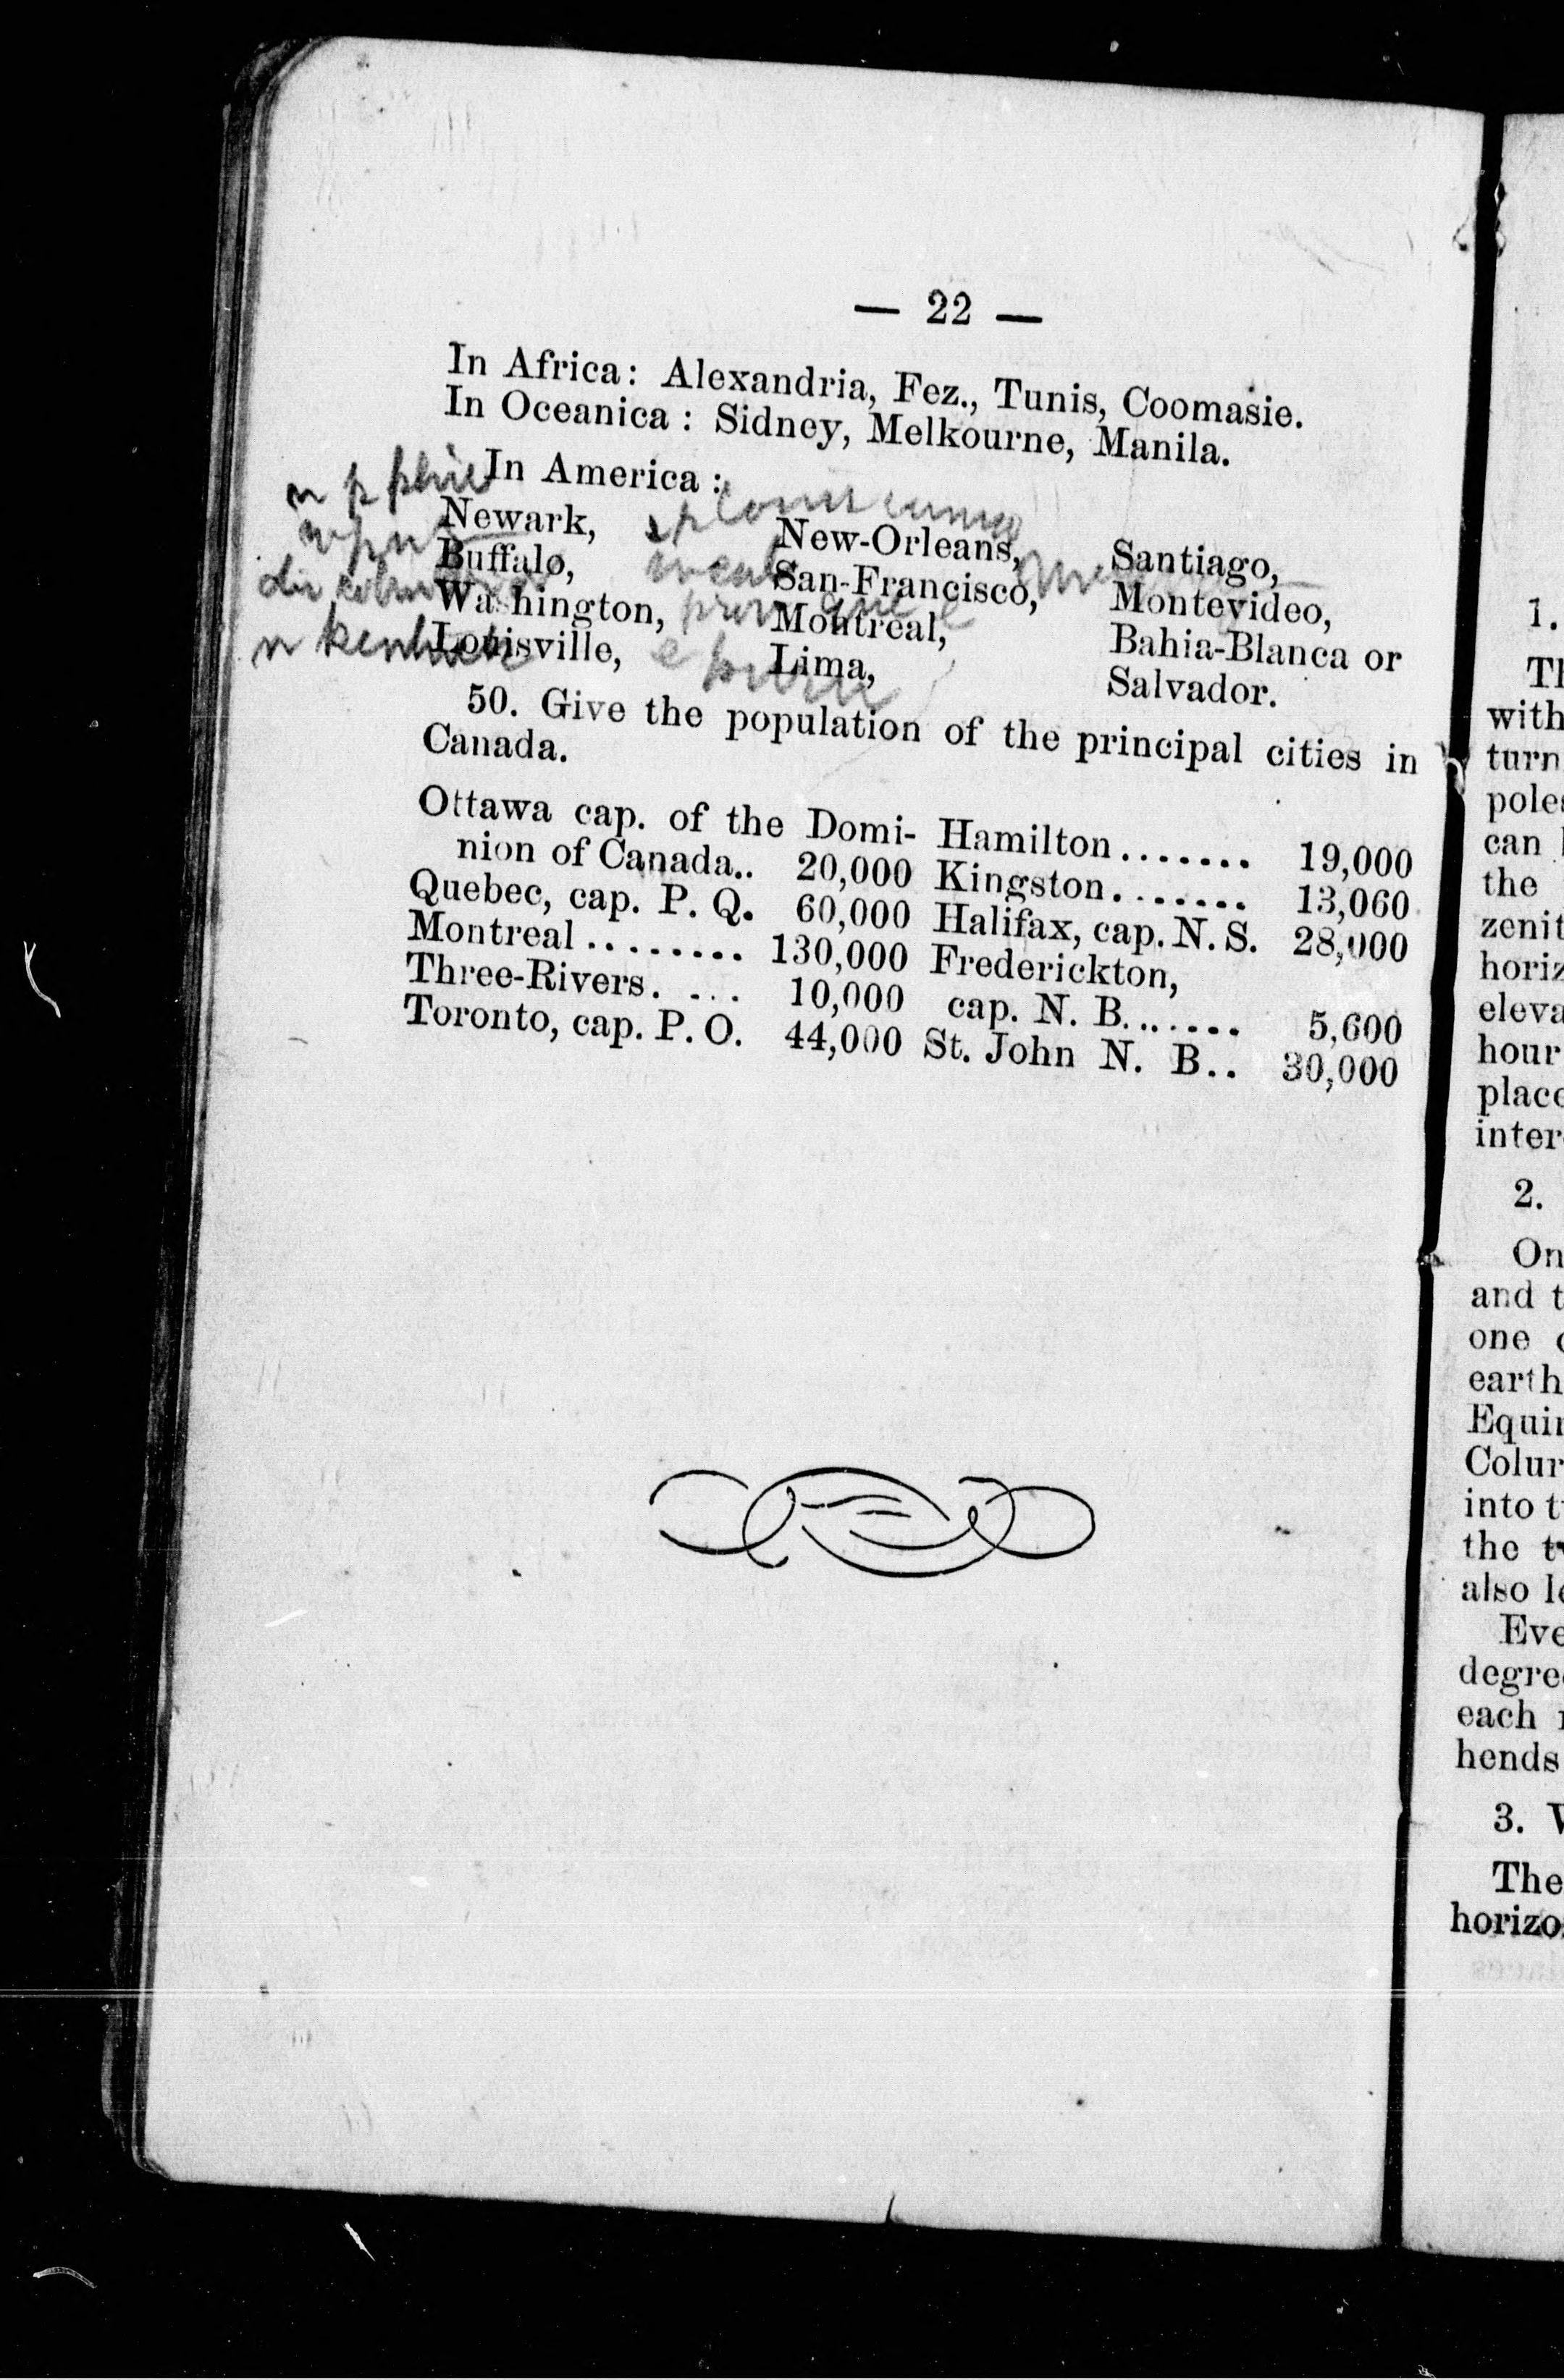 — 22 —
In Africa: Alexandria, Fez., Tunis, Coomasie.
In Oceanica : Sidney, Melkourne, Manila.
In America :
Newark, New-Orleans, Santiago,
Buffalo, San-Francisco, Montevideo,
Washington, Montreal, Bahia-Blanca or
Louisville, Lima, Salvador.
50. Give the population of the principal cities in
Canada.
Ottawa cap. of the Domi-
nion of Canada.. 20,000
Quebec, cap. P. Q. 60,000
Montreal ........ 130,000
Three-Rivers. ... 10,000
Toronto, cap. P. O. 44,000
Hamilton....... 19,000
Kingston....... 13,060
Halifax, cap. N. S. 28,000
Frederickton,
cap. N. B....... 5,600
St. John N. B.. 30,000
1.
with
turn
can
the
hour
2.
On
and t
one
earth
into t
the
also
each
hends
3.
The